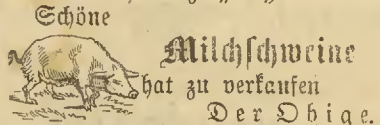 Schöne
Milchschweine
hat zu verkaufen
Der Obige.